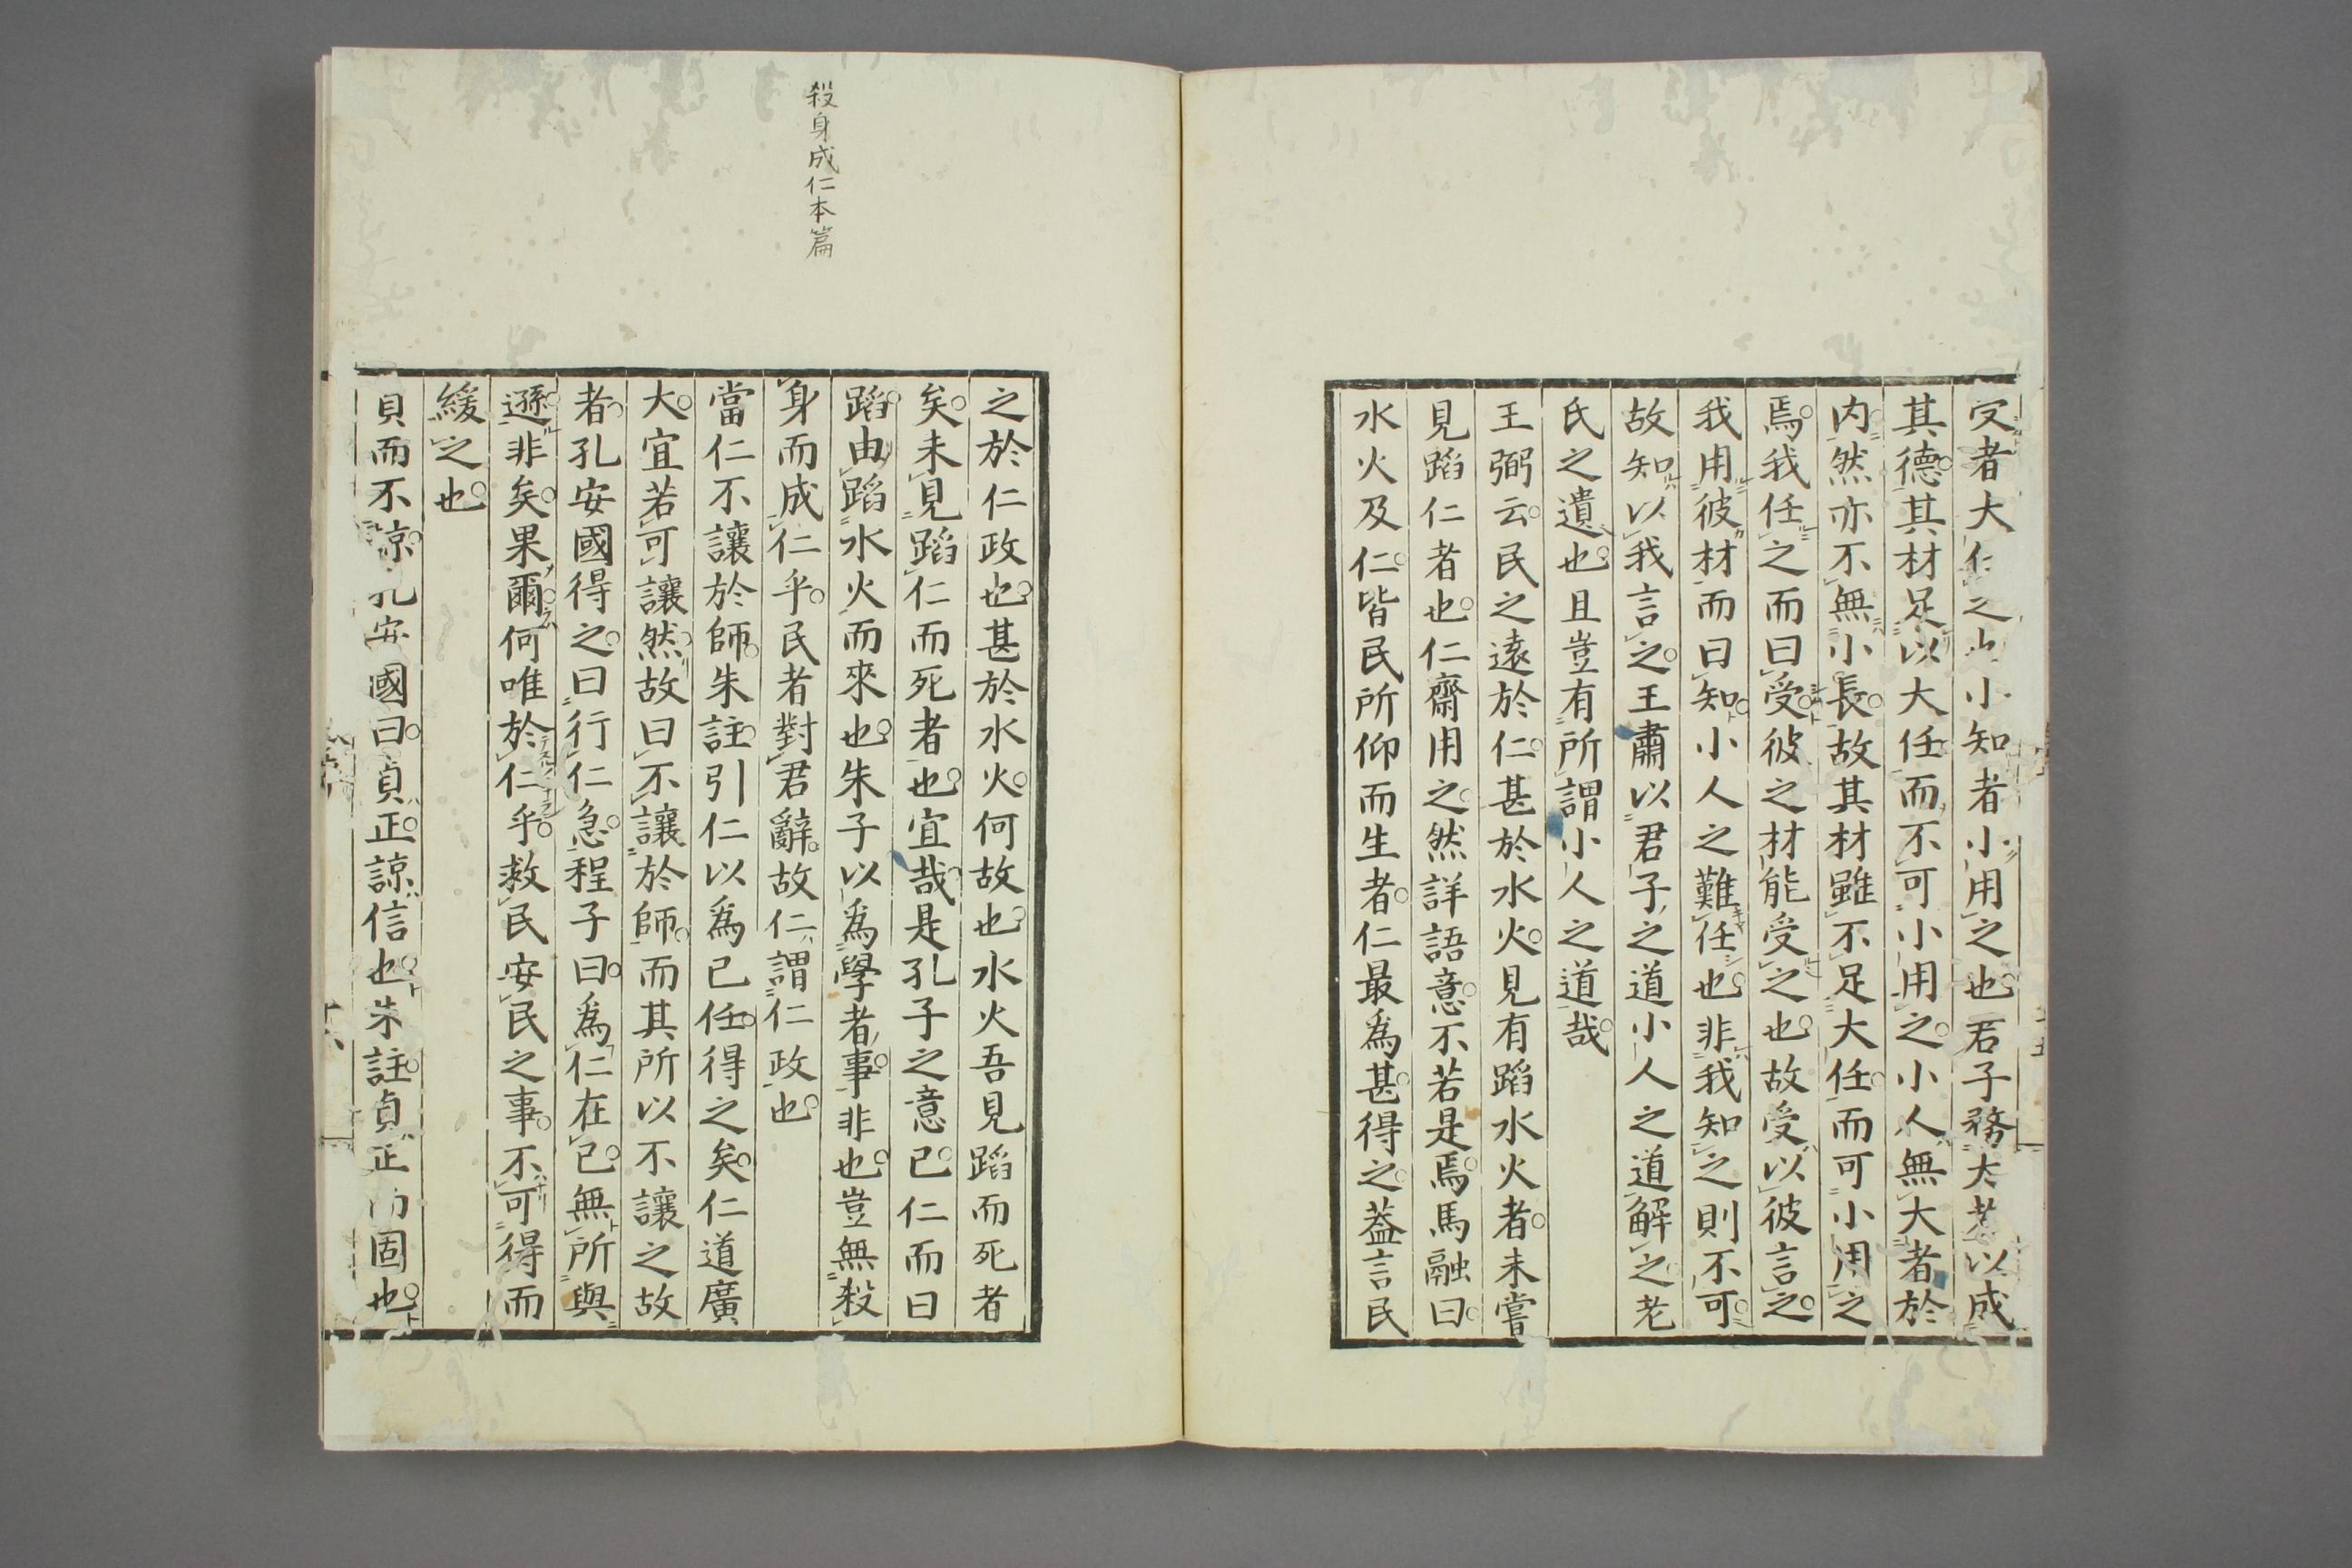 受者大任之也小知者小用之也君子務大者以成
其德其材足以大任而不可小用之小人無大者於
内然亦不無小長故其材雖不足大任而可小用之
焉我任之而曰受彼之材能受之也故受以彼言之
我用彼材而曰知小人之難任也非我知之則不可
故知以我言之王肅以君子之道小人之道解之老
氏之遺也且豈有所謂小人之道哉
王弼云民之遠於仁甚於水火見有蹈水火者未嘗
見蹈仁者也仁齋用之然詳語意不若是焉馬融曰
水火及仁皆民所仰而生者仁最爲甚得之葢言民
殺身成仁本篇
之於仁政也甚於水火何故也水火吾見蹈而死者
矣未見蹈仁而死者也宜哉是孔子之意已仁而曰
蹈由蹈水火而來也朱子以爲學者事非也豈無殺
身而成仁乎民者對君辭故仁謂仁政也
當仁不讓於師朱註引仁以爲己任得之矣仁道廣
大宜若可讓然故曰不讓於師而其所以不讓之故
者孔安國得之曰行仁急程子曰爲仁在己無所與
遜非矣果爾何唯於仁乎救民安民之事不可得而
緩之也
貞而不諒孔安國曰貞正諒信也朱註貞正而固也